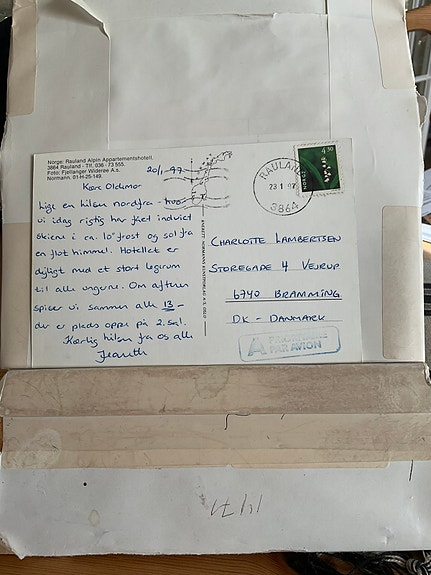 Norge: Rauland Alpin Appartementshotell,
3864 Rauland - Tlf. 036 - 73 555.
Foto: Fjellanger Widerøe A.s.
Normann, 01-H-25-149.
20/1-97
Kære Oldemor
Lige en hilsen nordfra - hvor
vi idag rigtig har fået indviet
skiene i ca. 10° frost og sol fra
en flot himmel. Hotellet er
dejligt med et stort legerum
til alle ungerne. Om aftenen
spiser vi sammen alle 13 -
der er plads oppe på 2. sal.
Kærlig hilsen fra os alle
ENERETT: NORMANNS KUNSTFORLAG A/S, OSLO
RAULAND
23.1.97
3864
4 50
NORGE
CHARLOTTE LAMBERTSEN
STOREGADE 4 VEJRUP
6740 BRAMMING
DK - DANMARK
A PRIORITAIRE
PAR AVION